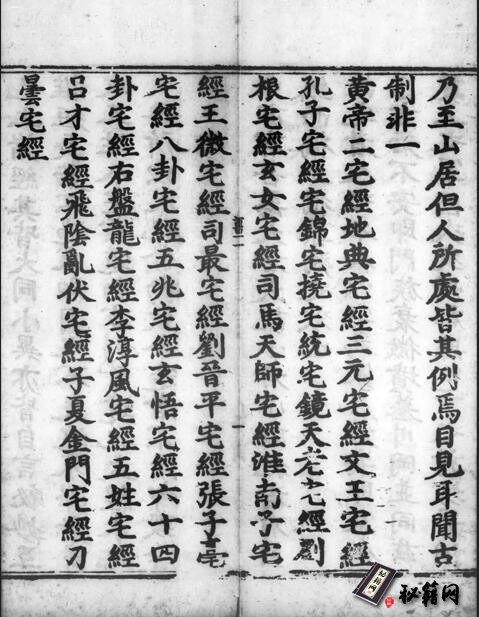 乃至山居但人所處皆其例焉目見耳聞古
制非一
黃帝二宅經地典宅經三元宅經文王宅經
孔子宅經宅錦宅撓宅統宅鏡天老宅經劉
根宅經玄女宅經司馬天師宅經淮南子宅
經王微宅經司最宅經劉晉平宅經張子毫
宅經八卦宅經五兆宅經玄悟宅經六十四
卦宅經右盤龍宅經李淳風宅經五姓宅經
呂才宅經飛陰亂伏宅經子夏金門宅經刀
曇宅經
秘籍网